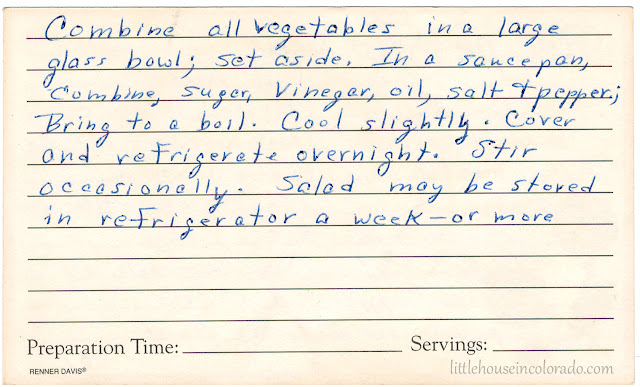 Combine all vegetables in a large
glass bowl; set aside. In a saucepan,
Combine, suger, Vinegar, oil, salt & pepper;
Bring to a boil. Cool slightly. Cover
and refrigerate overnight. Stir
occasionally. Salad may be stored
in refrigerator a week—or more
Preparation Time: Servings:
RENNER DAVIS® littlehouseincolorado.com